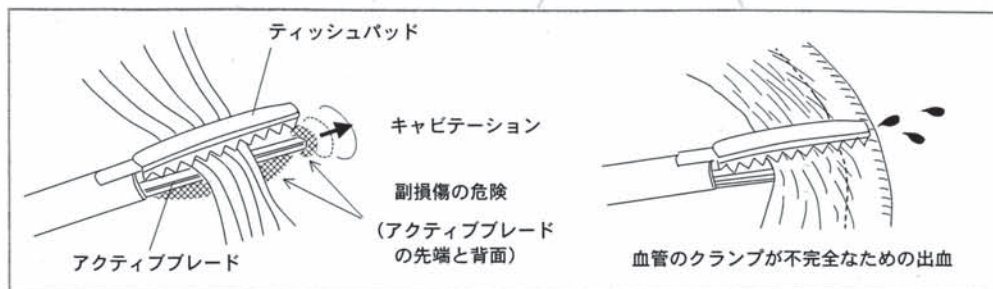 ティッシュパッド
キャビテーション
副損傷の危険
（アクティブブレード
の先端と背面）
アクティブブレード
血管のクランプが不完全なための出血